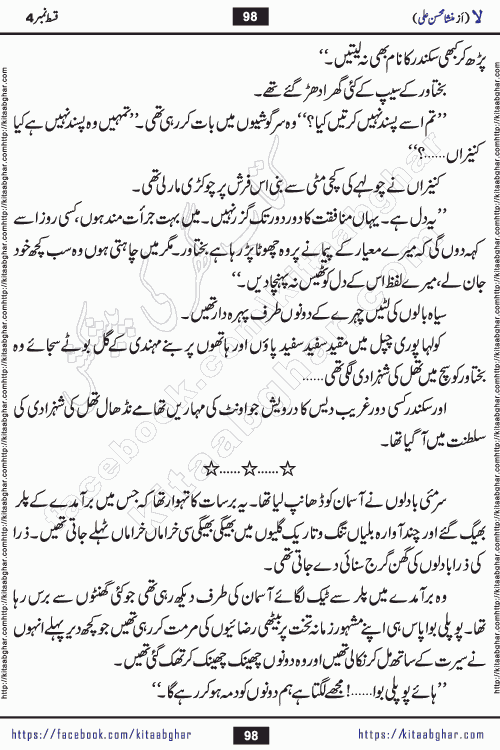 لا (از منشا محسن علی)
98
قسط نمبر 4
پڑھ کر کبھی سکندر کا نام بھی نہ لیتیں۔‘‘
بختاور کے سیپ کے کئی گھر ادھڑ گئے تھے۔
’’تم اسے پسند نہیں کرتیں کیا؟‘‘ وہ سرگوشیوں میں بات کر رہی تھی۔ ’’تمہیں وہ پسند نہیں ہے کیا
کنیزاں......؟‘‘
کنیزاں نے چولہے کی کچی مٹی سے بنی اس فرش پر چوکڑی مار لی تھی۔
’’یہ دل ہے۔ یہاں منافقت کا دور دور تک گزر نہیں۔ میں بہت جرأت مند ہوں، کسی روز اسے
کہہ دوں گی کہ میرے معیار کے پیمانے پر وہ چھوٹا پڑ رہا ہے بختاور۔ مگر میں چاہتی ہوں وہ سب کچھ خود
جان لے، میرے لفظ اس کے دل کو ٹھیس نہ پہنچا دیں۔‘‘
سیاہ بالوں کی لٹیں چہرے کے دونوں طرف پہرہ دار تھیں۔
کولہا پوری چپل میں مقید سفید سفید پاؤں اور ہاتھوں پر بنے مہندی کے گل بوٹے سجائے وہ
بختاور کو سچ میں تھل کی شہزادی لگی تھی......
اور سکندر کسی دور غریب دیس کا درویش جو اونٹ کی مہاریں تھامے نڈھال تھل کی شہزادی کی
سلطنت میں آ گیا تھا۔
☆......☆......☆
سرمئی بادلوں نے آسمان کو ڈھانپ لیا تھا۔ یہ برسات کا تہوار تھا کہ جس میں برآمدے کے پلر
بھیگ گئے اور چند آوارہ بلیاں تنگ و تاریک گلیوں میں بھیگی بھیگی سی خراماں خراماں ٹہلے جاتی تھیں۔ ذرا
کی ذرا بادلوں کی گھن گرج سنائی دے جاتی تھی۔
وہ برآمدے میں پلر سے ٹیک لگائے آسمان کی طرف دیکھ رہی تھی جو کئی گھنٹوں سے برس رہا
تھا۔ پوپلی بوا پاس ہی اپنے مشہور زمانہ تخت پر بیٹھی رضائیوں کی مرمت کر رہی تھیں جو کچھ دیر پہلے انہوں
نے سیرت کے ساتھ مل کر نکالی تھیں اور وہ دونوں چھینک چھینک کر تھک گئی تھیں۔
’’ہائے پوپلی بوا......! مجھے لگتا ہے ہم دونوں کو دمہ ہو کر رہے گا۔‘‘
https://facebook.com/kitaabghar
98
http://kitaabghar.com